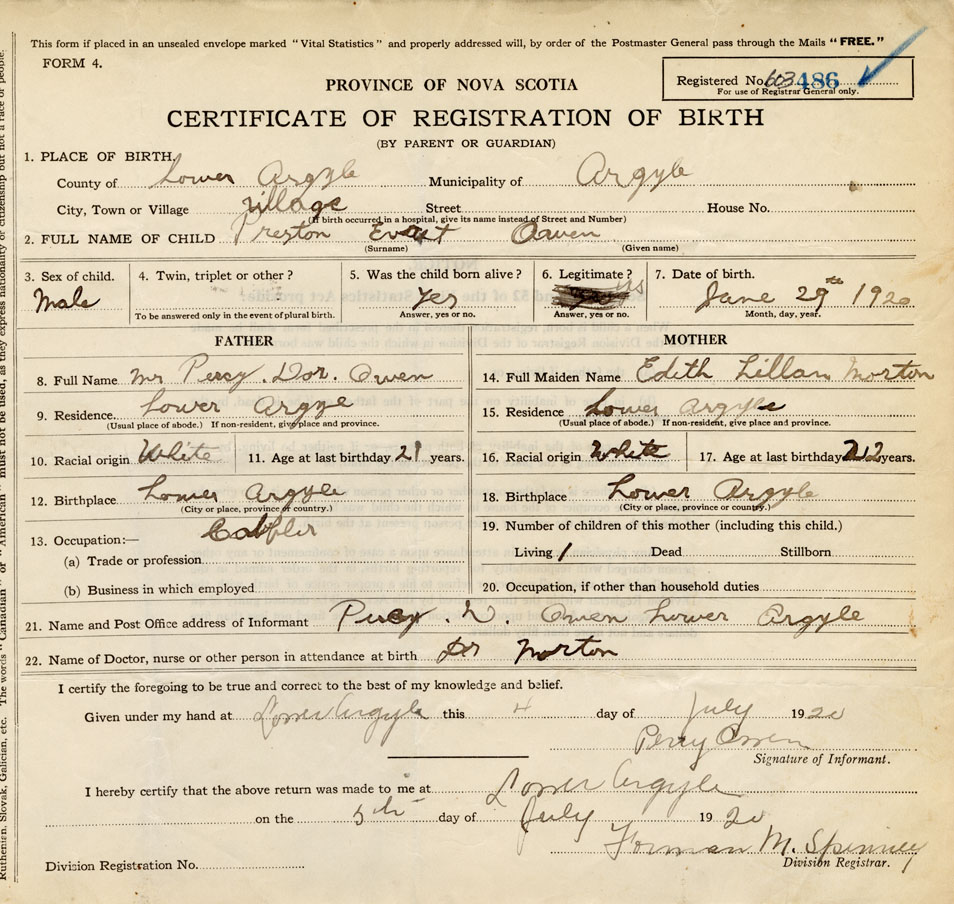 This form if placed in an unsealed envelope marked "Vital Statistics" and properly addressed will, by order of the Postmaster General pass through the Mails "FREE."
FORM 4.
Registered No. 603 486
For use of Registrar General only.
PROVINCE OF NOVA SCOTIA
CERTIFICATE OF REGISTRATION OF BIRTH
(BY PARENT OR GUARDIAN)
1. PLACE OF BIRTH.
County of Lower Argyle Municipality of Argyle
City, Town or Village village Street House No.
(If birth occurred in a hospital, give its name instead of Street and Number)
2. FULL NAME OF CHILD Preston Owen
(Surname) (Given name)
3. Sex of child. 4. Twin, triplet or other? 5. Was the child born alive? 6. Legitimate? 7. Date of birth.
Male Yes Yes June 29th 1920
To be answered only in the event of plural birth. Answer, yes or no. Answer, yes or no. Month, day, year.
FATHER MOTHER
8. Full Name Mr Percy. Dor. Owen 14. Full Maiden Name Edith Lillan Morton
9. Residence. Lower Argye 15. Residence Lower Argyle
(Usual place of abode.) If non-resident, give place and province. (Usual place of abode.) If non-resident, give place and province.
10. Racial origin White 11. Age at last birthday 21 years. 16. Racial origin White 17. Age at last birthday 22 years.
12. Birthplace Lower Argyle 18. Birthplace Lower Argyle
(City or place, province or country.) (City or place, province or country.)
13. Occupation:— 19. Number of children of this mother (including this child.)
(a) Trade or profession Living 1 Dead Stillborn
(b) Business in which employed 20. Occupation, if other than household duties
21. Name and Post Office address of Informant Percy. D. Owen Lower Argyle
22. Name of Doctor, nurse or other person in attendance at birth Dr Morton
I certify the foregoing to be true and correct to the best of my knowledge and belief.
Given under my hand at Lower Argyle this 4 day of July 1920
Percy Owen
Signature of Informant.
I hereby certify that the above return was made to me at Lower Argyle
on the 5th day of July 1920
Forman M. Spinney
Division Registrar.
Division Registration No.
Ruthenian, Slovak, Galician, etc. The words "Canadian" or "American" must not be used, as they express nationality or citizenship but not a race or people.